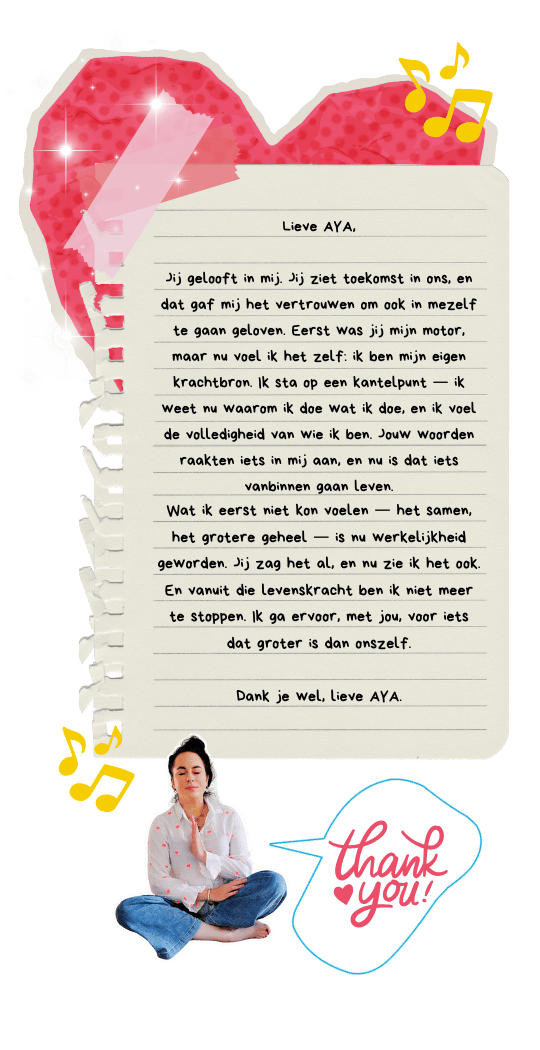 Lieve AYA,
Jij gelooft in mij. Jij ziet toekomst in ons, en
dat gaf mij het vertrouwen om ook in mezelf
te gaan geloven. Eerst was jij mijn motor,
maar nu voel ik het zelf: ik ben mijn eigen
krachtbron. Ik sta op een kantelpunt — ik
weet nu waarom ik doe wat ik doe, en ik voel
de volledigheid van wie ik ben. Jouw woorden
raakten iets in mij aan, en nu is dat iets
vanbinnen gaan leven.
Wat ik eerst niet kon voelen — het samen,
het grotere geheel — is nu werkelijkheid
geworden. Jij zag het al, en nu zie ik het ook.
En vanuit die levenskracht ben ik niet meer
te stoppen. Ik ga ervoor, met jou, voor iets
dat groter is dan onszelf.
Dank je wel, lieve AYA.
thank
you!